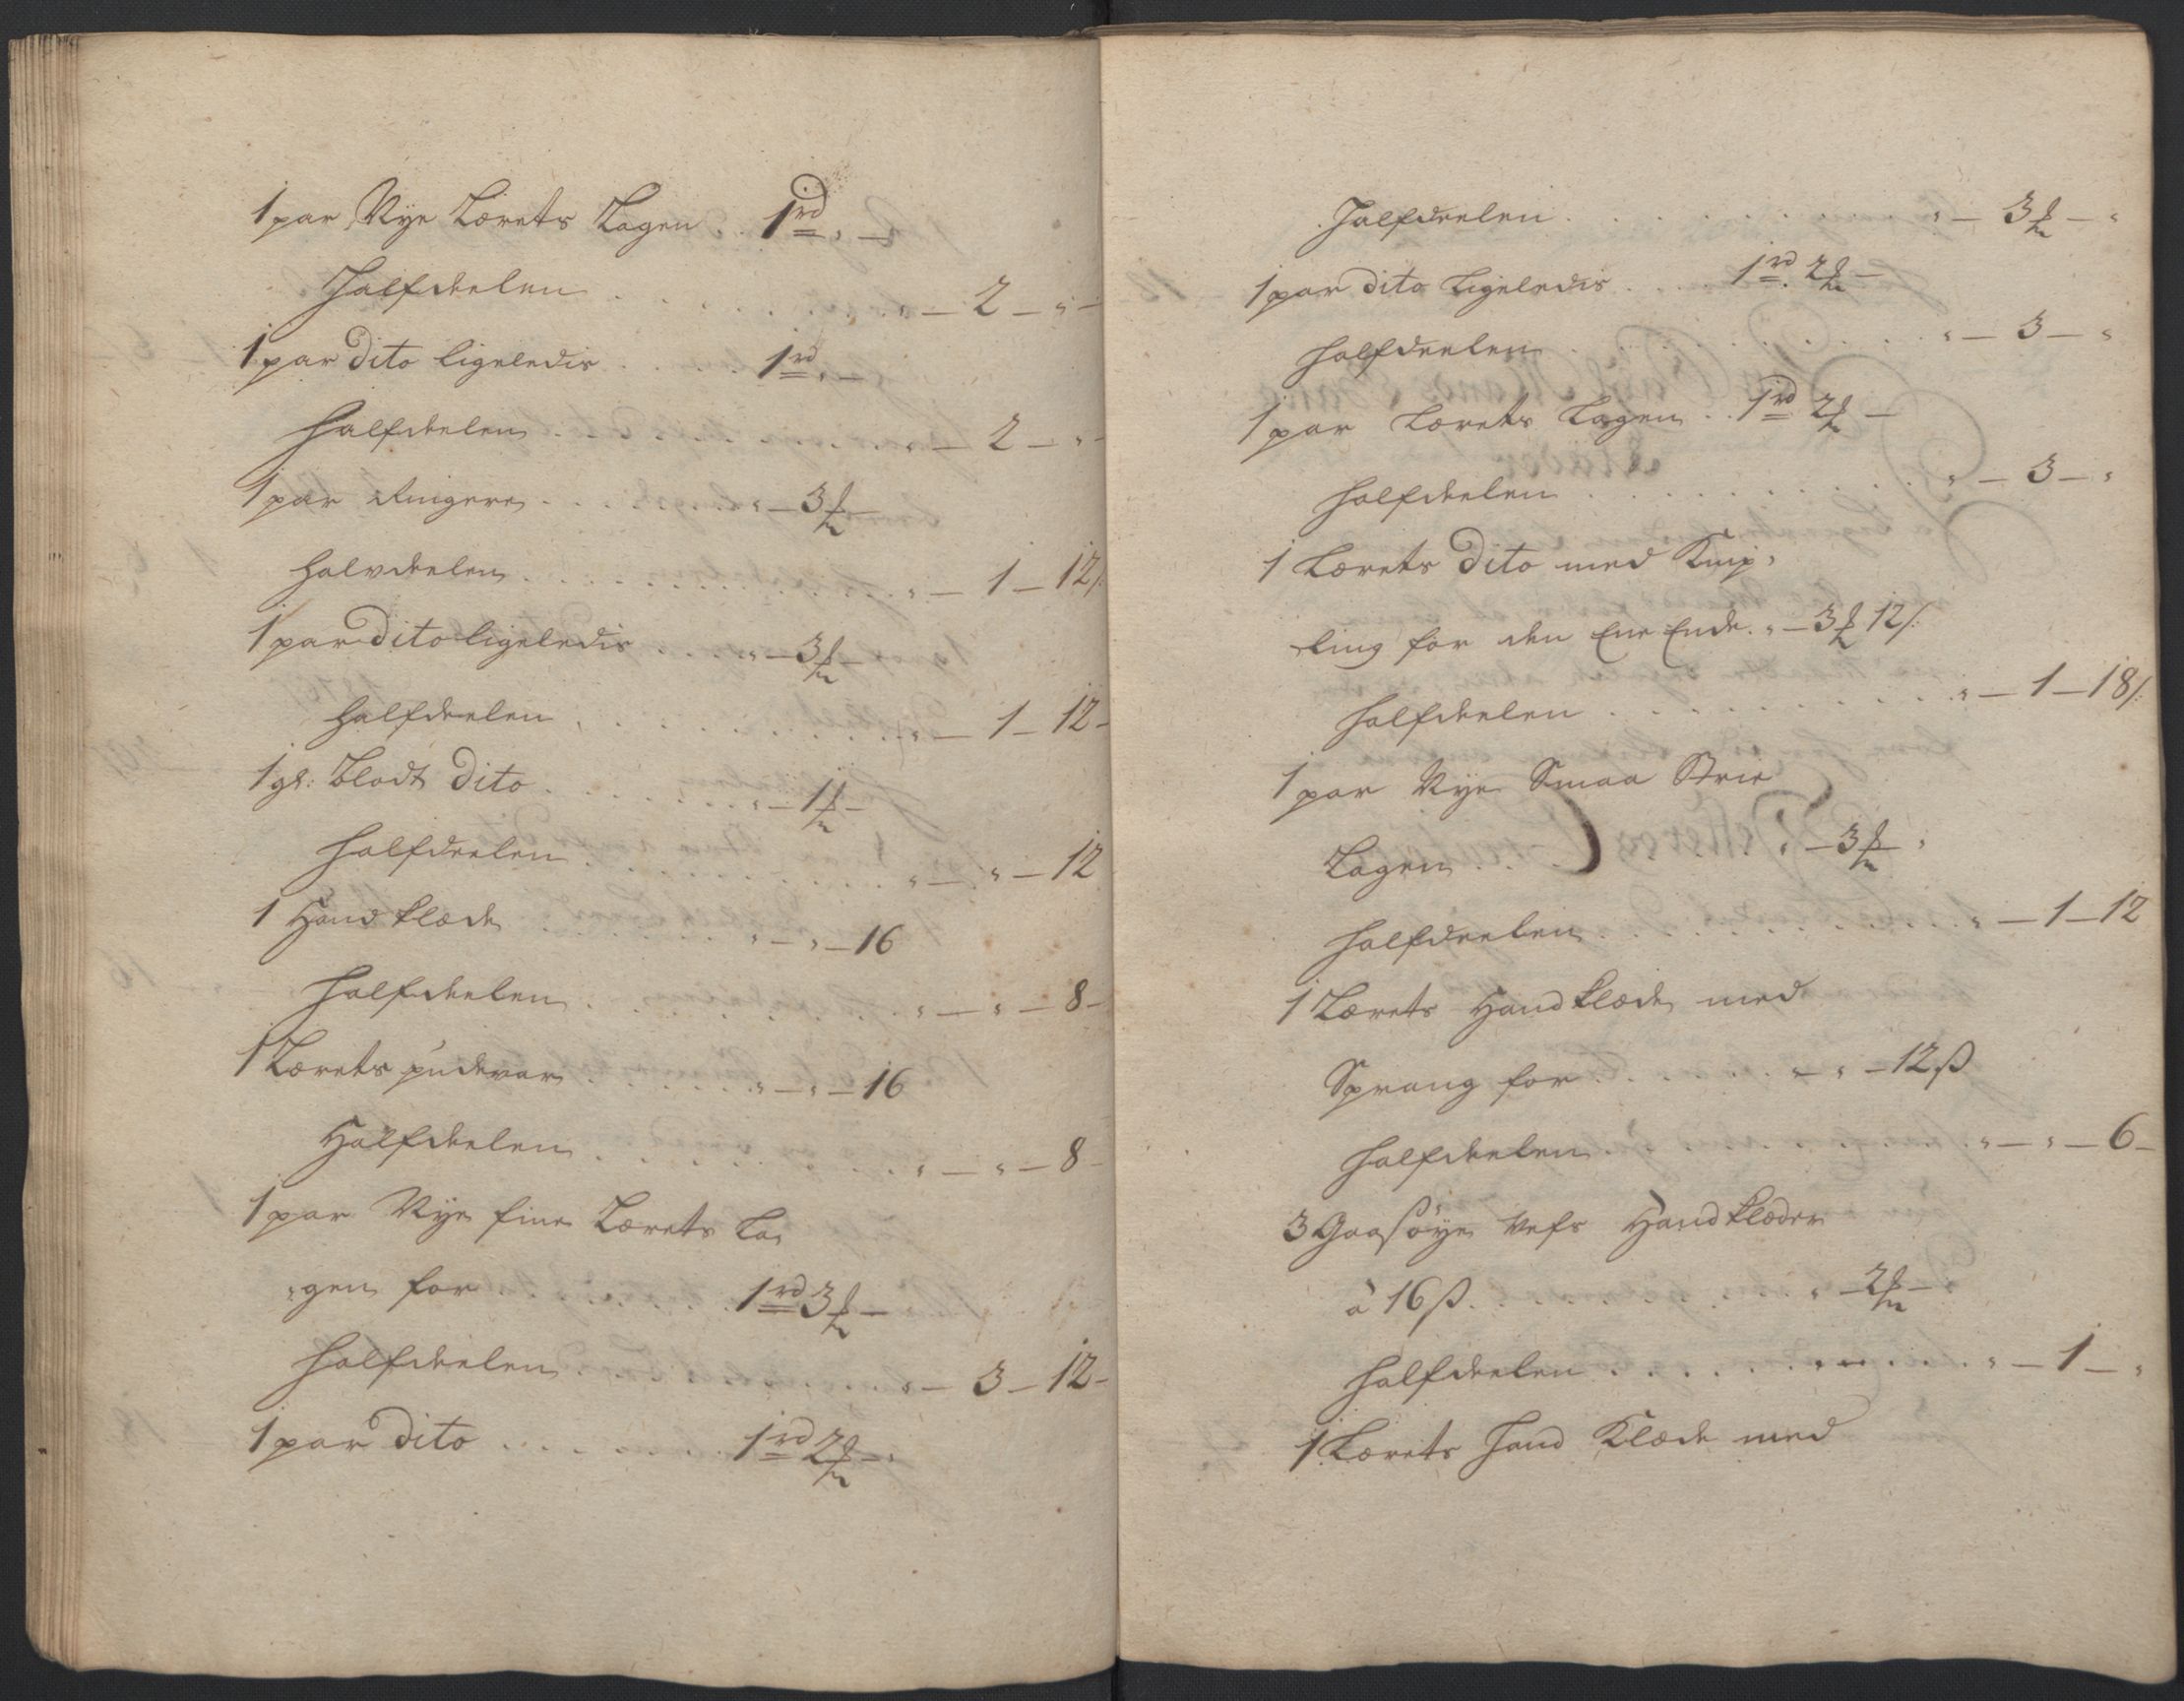 1 par Nye Lærets Lagen . . 1 rd „ —
Halfdeelen . . . . . . . „ — 2 — „ —
1 par Dito ligeledis . . . . . 1 rd „ —
Halfdeelen . . . . . . . „ — 2 — „ -
1 par Ringere . . . . . „ — 3 ₰ —
Halvdeelen . . . . . . . „ — 1 — 12 /:
1 par dito ligeledis . . . „ — 3 ₰ —
Halfdeelen . . . . . . . „ — 1 — 12 -
1 gl: Bladt Dito . . . . . . „ — 1 ₰ —
Halfdeelen . . . . . . . „ — „ — 12
1 Hand klæde . . . . . . „ — „ — 16
Halfdeelen . . . . . . . „ — „ — 8 -
1 Lærets pudevar . . . . . „ — „ — 16
Halfdeelen . . . . . . . „ — „ — 8 -
1 par Nye fine Lærets La„
„gen for . . . . . . 1 rd 3 ₰ —
Halfdeelen . . . . . . . „ — 3 — 12 -
1 par Dito . . . . . . . 1 rd 2 ₰ — „
Halfdeelen . . . . . . . „ — 3 ₰ — „
1 par dito ligeledis . . . . 1 rd 2 ₰ —
Halfdeelen . . . . . . . „ — 3 — „
1 par Lærets Lagen . . 1 rd 2 ₰ —
Halfdeelen . . . . . . . „ — 3 — „
1 Lærets Dito med Knip„
ling for den Ene Ende . „ — 3 ₰ 12 /:
Halfdeelen . . . . . . . „ — 1 — 18 /:
1 par Nye Smaa Strie
Lagen . . . . . . . „ — 3 ₰ — „
Halfdeelen . . . . . . . „ — 1 — 12
1 Lærets Handklæde med
Sprang for . . . . . . „ — „ — 12 ß
Halfdeelen . . . . . . . „ — „ — 6 —
3 Gaasøye Vefs Handklæder
à 16 ß . . . . . . . „ — 2 ₰ —
Halfdeelen . . . . . . . „ — 1 — „
1 Lærets Hand Klæde med